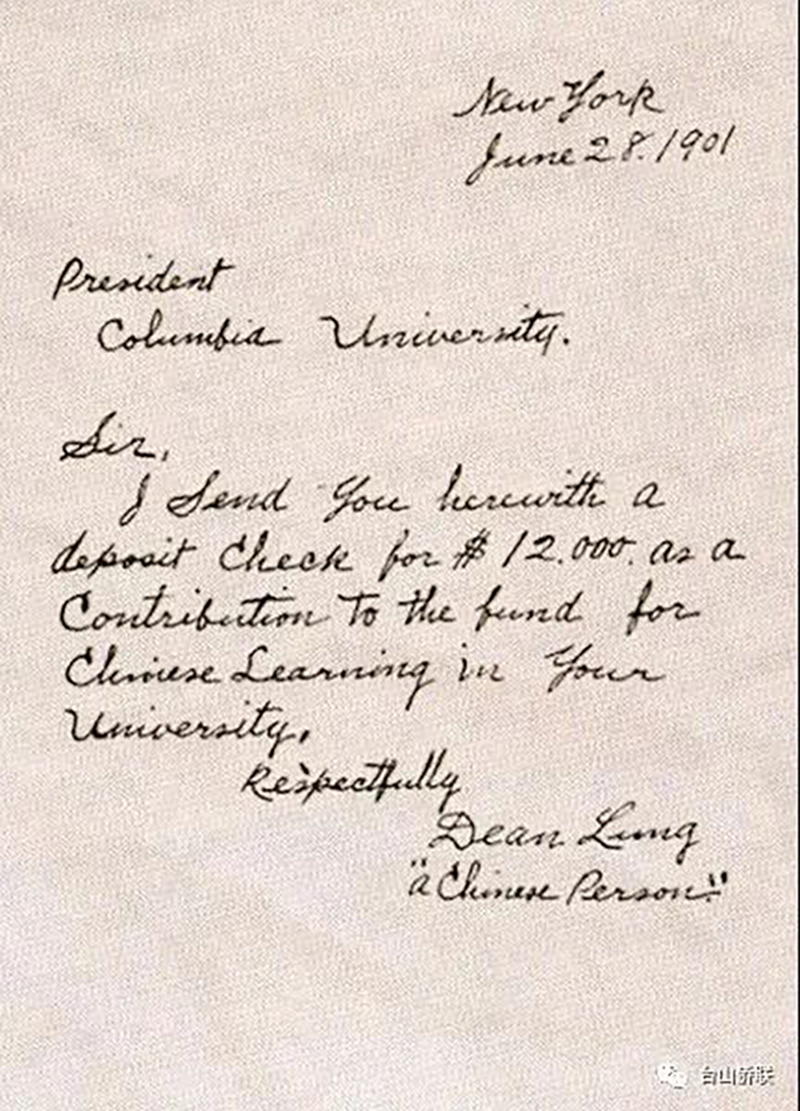 New York
June 28. 1901
President
Columbia University.
Sir,
I Send You herewith a
deposit Check for $ 12.000. as a
Contribution To the fund for
Chinese Learning in Your
University.
Respectfully
Dean Lung
"a Chinese Person."
台山侨联